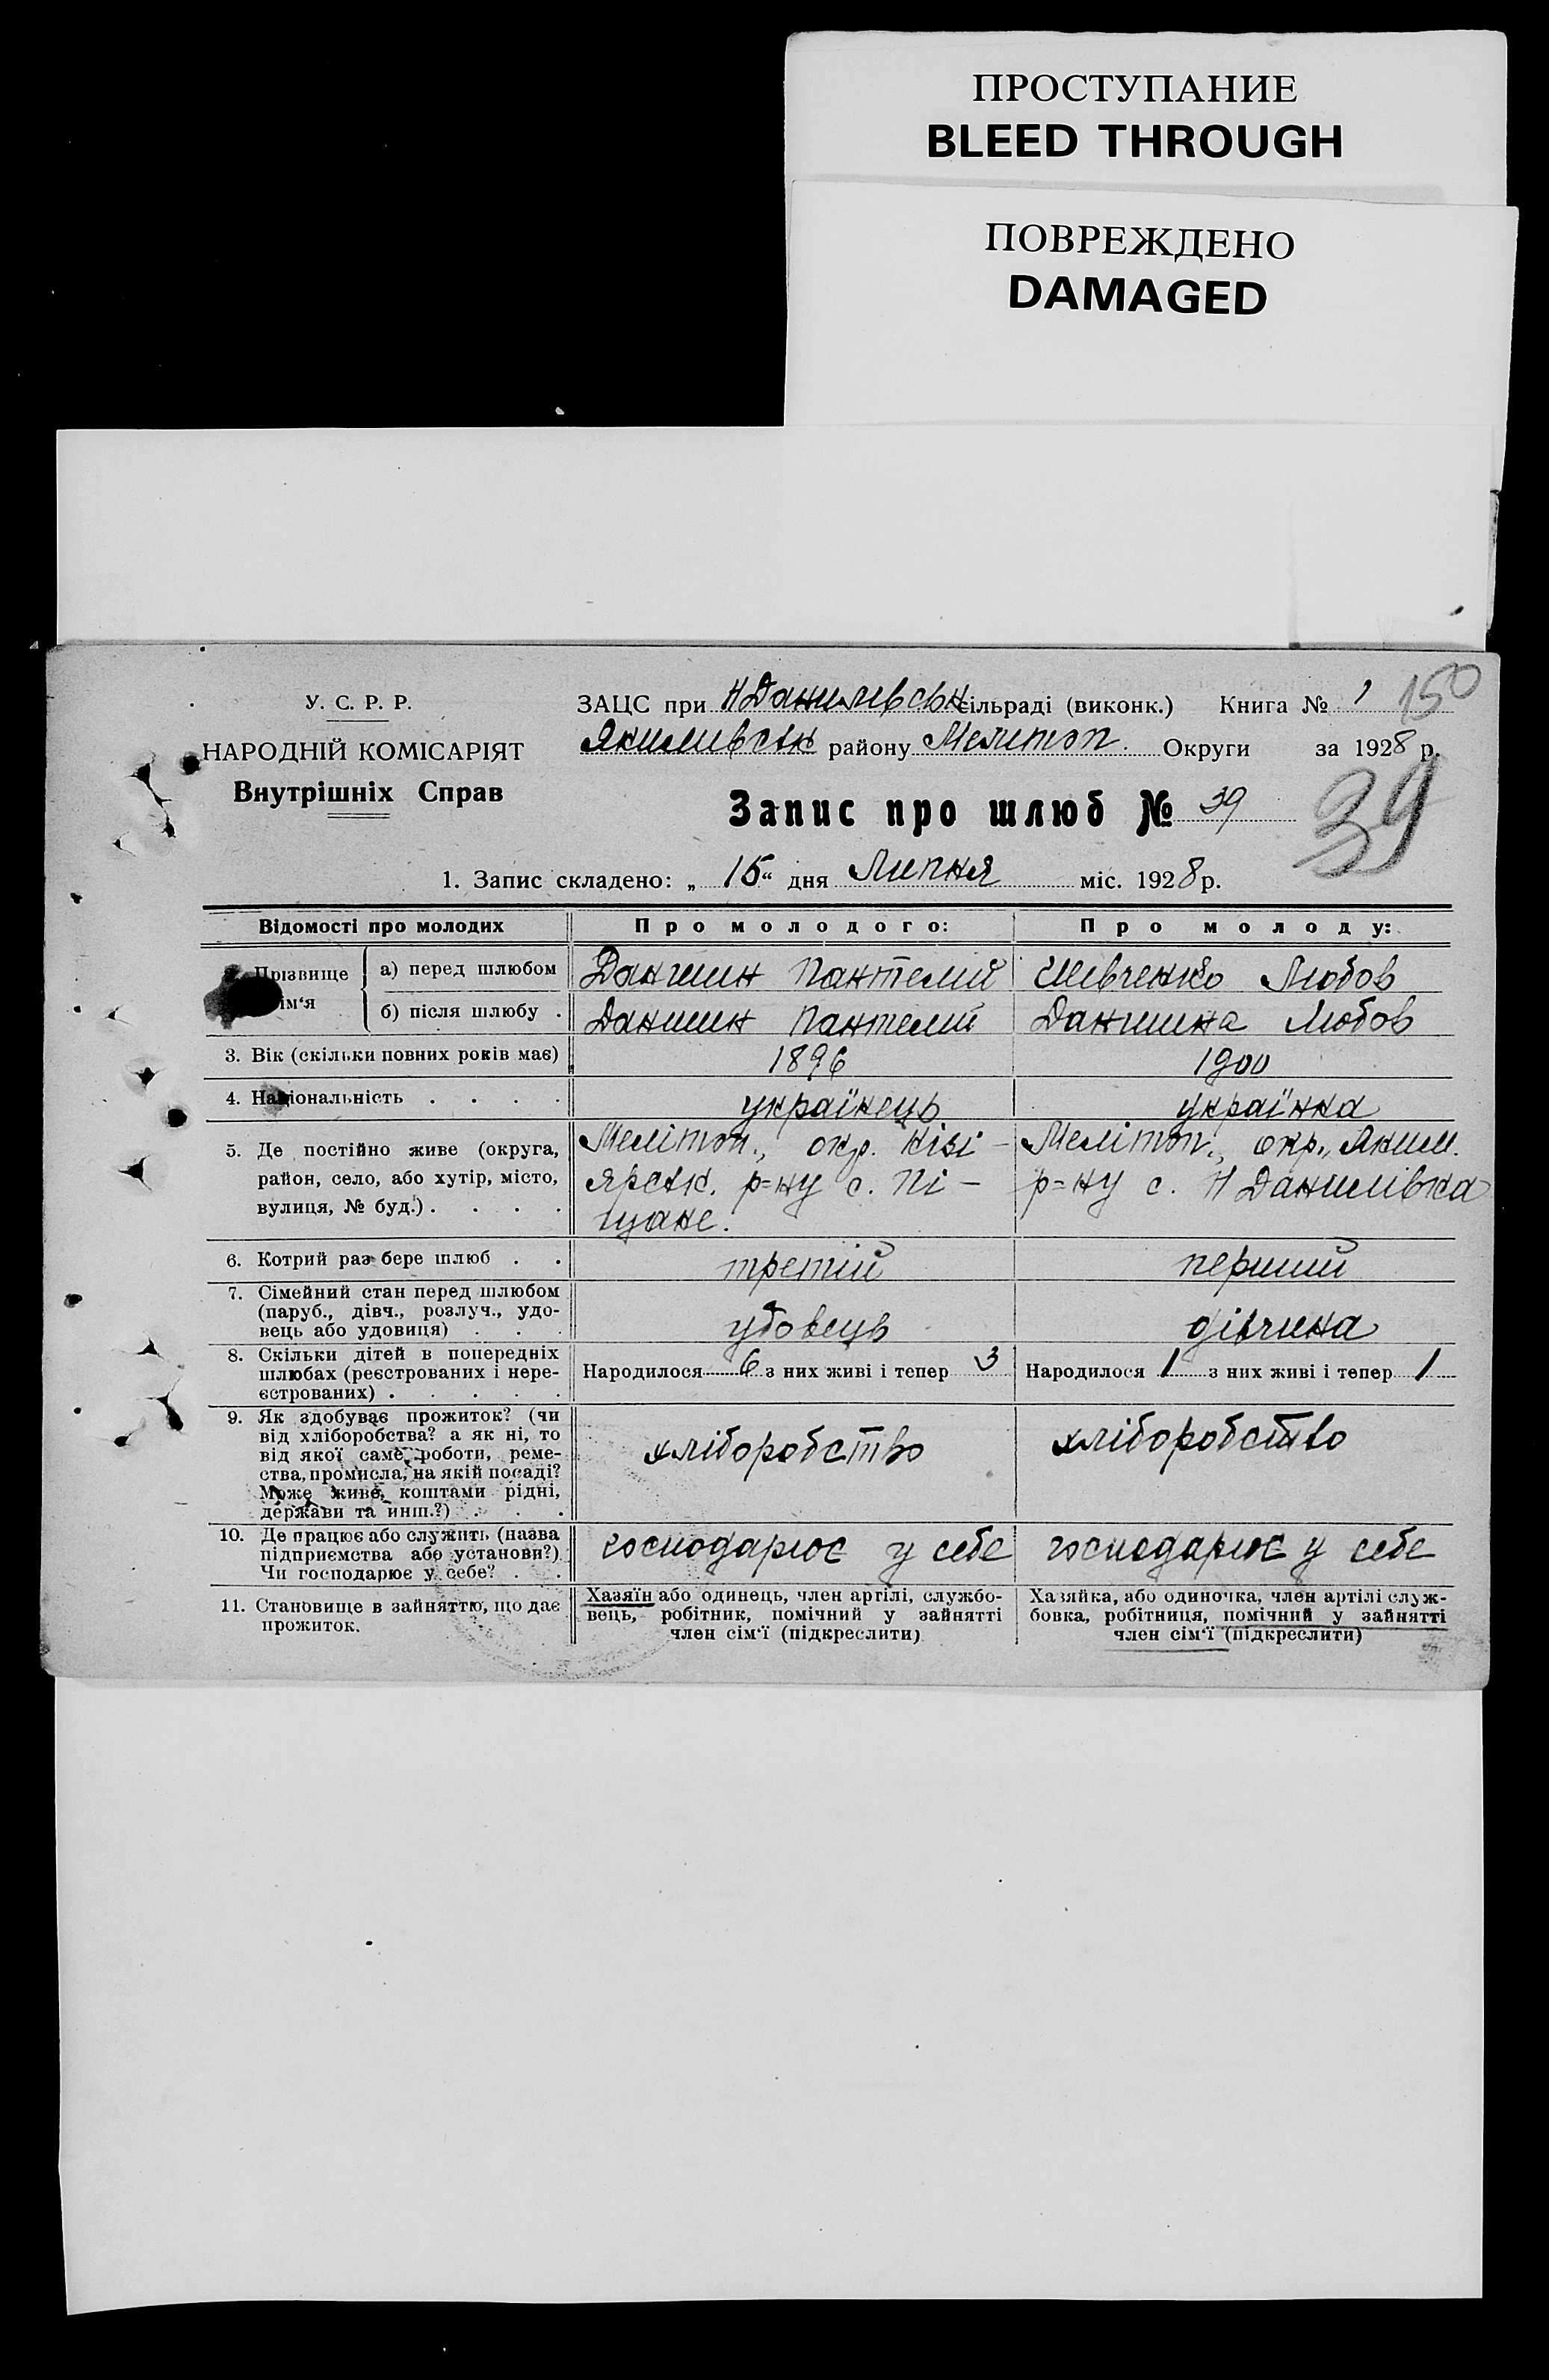 ПРОСТУПАНИЕ
BLEED THROUGH
ПОВРЕЖДЕНО
DAMAGED
У. С. Р. Р.
НАРОДНІЙ КОМІСАРІЯТ
Внутрішніх Справ
ЗАЦС при Н Данилівськ сільраді (виконк.) Книга № 1 150
Якимівськ району Мелітоп. Округи за 1928 р.
Запис про шлюб № 39 39
1. Запис складено: „ 15 “ дня Липня міс. 1928 р.
Відомості про молодих Про молодого: Про молоду:
Прізвище а) перед шлюбом Даншин Пантелій Шевченко Любов
ім‘я б) після шлюбу . Даншин Пантелій Даншина Любов
3. Вік (скільки повних років має) 1896 1900
4. Національність . . . . українець українка
5. Де постійно живе (округа, район, село, або хутір, місто, вулиця, № буд.) . . . .
Мелітоп., окр. Кізі-
ярськ. р=ну с. Пі-
щане.
Мелітоп., окр., Яким.
р=ну с. Н Данилівка
6. Котрий раз бере шлюб . . третій перший
7. Сімейний стан перед шлюбом
(паруб., дівч., розлуч., удо-
вець або удовиця) . . . удовець дівчина
8. Скільки дітей в попередніх
шлюбах (реєстрованих і нере-
єстрованих) . . . . .
Народилося 6 з них живі і тепер 3 Народилося 1 з них живі і тепер 1
9. Як здобуває прожиток? (чи
від хліборобства? а як ні, то
від якої саме роботи, реме-
ства, промисла, на якій посаді?
Може живе, коштами рідні,
держави та инш.?) . . .
хліборобство хліборобство
10. Де працює або служить (назва
підприємства або установи?)
Чи господарює у себе? . .
господарює у себе господарює у себе
11. Становище в зайняттю, що дає
прожиток.
Хазяїн або одинець, член артілі, службо-
вець, робітник, помічний у зайнятті
член сім‘ї (підкреслити)
Хазяйка, або одиночка, член артілі служ-
бовка, робітниця, помічний у зайнятті
член сім‘ї (підкреслити)